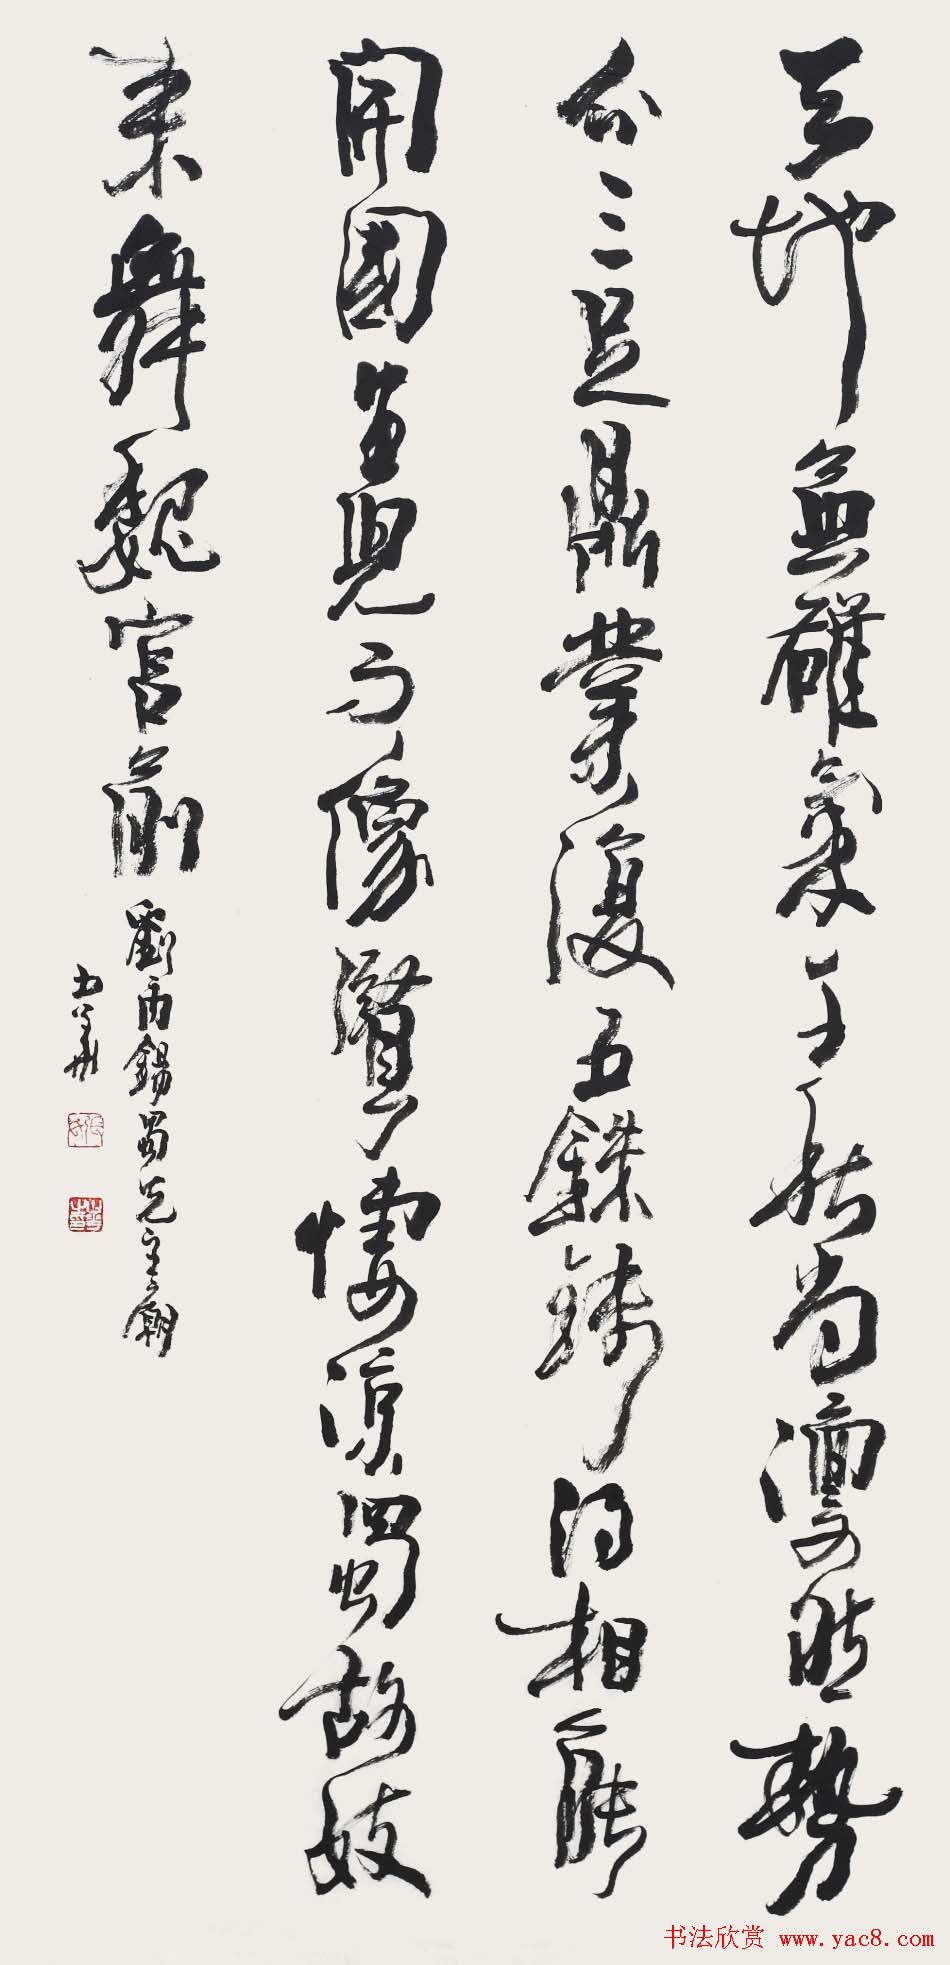 天地英雄氣千秋尚凜然勢
分三足鼎業復五銖錢得相能
開國生兒不像賢悽涼蜀故妓
來舞魏宮前 劉禹錫蜀先主廟
书法欣赏 www.yac8.com